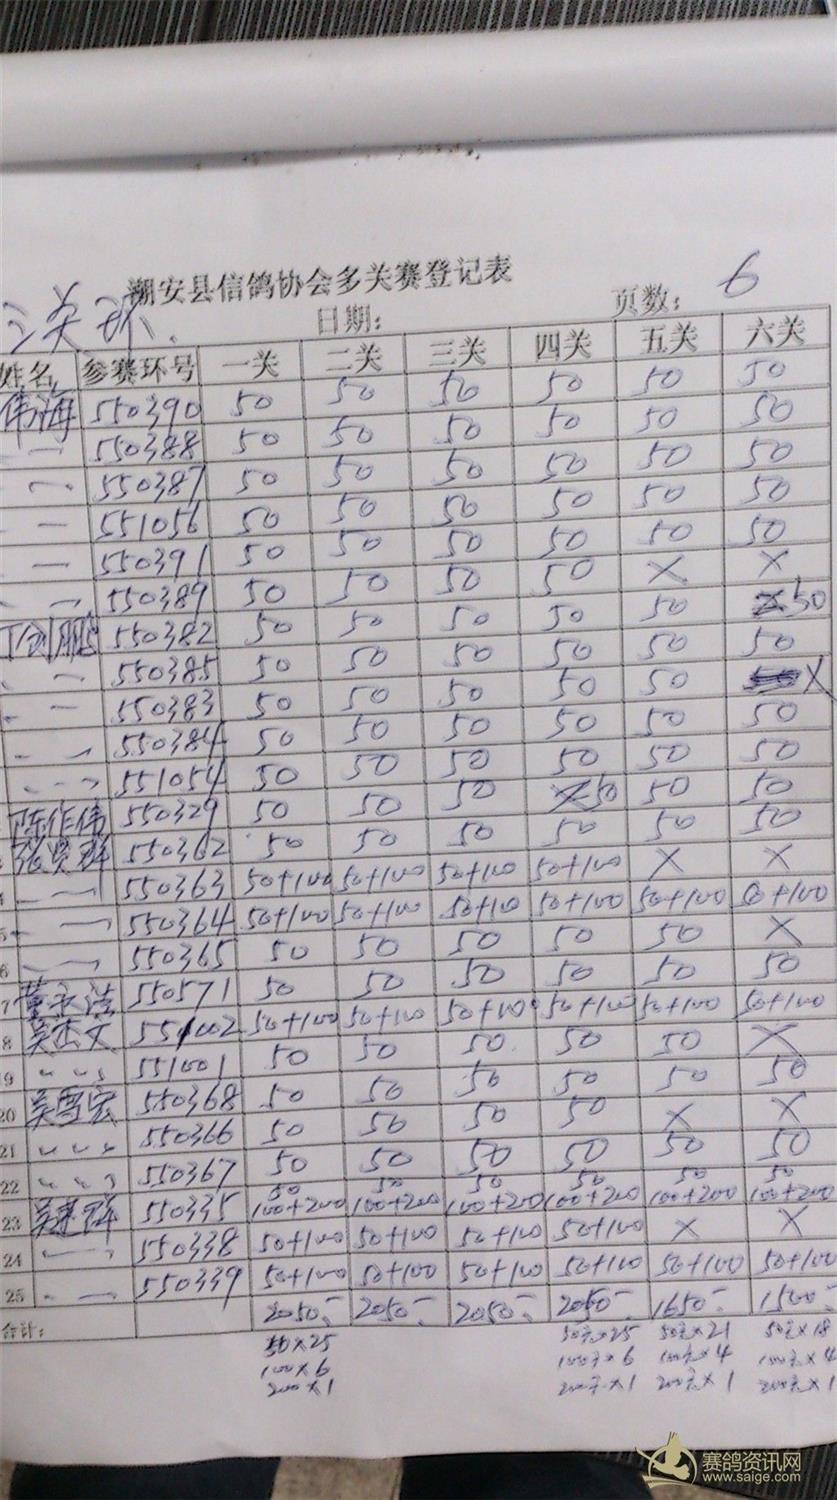 潮安县信鸽协会多关赛登记表
三关环.
日期: 页数: 6
姓名 参赛环号 一关 二关 三关 四关 五关 六关
伟海 550390 50 50 50 50 50 50
〃 550388 50 50 50 50 50 50
〃 550387 50 50 50 50 50 50
〃 551056 50 50 50 50 50 50
〃 550391 50 50 50 50 50 50
〃 550389 50 50 50 50 X X
剑鹏 550382 50 50 50 50 50 50
〃 550385 50 50 50 50 50 50
〃 550383 50 50 50 50 50 X
〃 550384 50 50 50 50 50 50
〃 551054 50 50 50 50 50 50
陈作伟 550329 50 50 50 50 50 50
张贤群 550362 50 50 50 50 50 50
4 〃 550363 50+100 50+100 50+100 50+100 X X
5 〃 550364 50+100 50+100 50+100 50+100 50+100 50+100
6 〃 550365 50 50 50 50 50 X
7 550571 50 50 50 50 50 50
18 吴杰文 551002 50+100 50+100 50+100 50+100 50+100 50+100
19 〃 551001 50 50 50 50 50 X
20 吴雪宏 550368 50 50 50 50 50 50
21 〃 550366 50 50 50 50 X X
22 〃 550367 50 50 50 50 50 50
50 50 50 50 50 50
23 吴建群 550335 100+200 100+200 100+200 100+200 100+200 100+200
24 〃 550338 50+100 50+100 50+100 50+100 X X
25 〃 550339 50+100 50+100 50+100 50+100 50+100 50+100
合计: 2050- 2050- 2050- 2050- 1650- 1500-
50×25 50元×25 50元×21 50元×18
100×6 100元×6 100元×4 100元×4
200×1 200元×1 200元×1 200元×1
赛鸽资讯网
www.saige.com